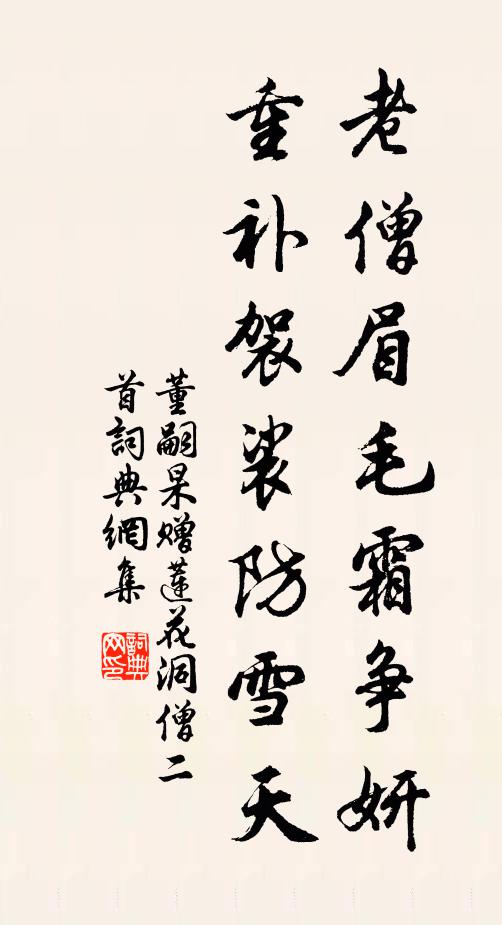 老僧眉毛霜争妍
重补袈裟防雪天
董嗣杲赠莲花洞僧二
首詞典網集
詞典